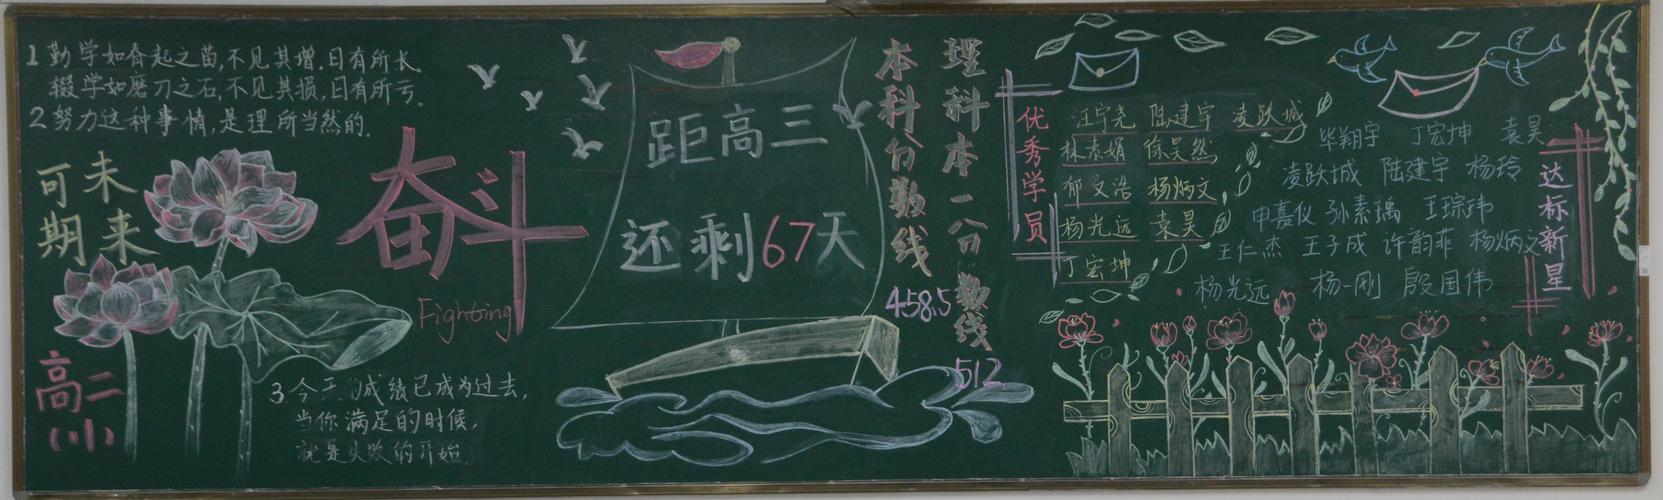 1 勤学如春起之苗,不见其增,日有所长.
辍学如磨刀之石,不见其损,日有所亏.
2 努力这种事情,是理所当然的.
未来
可期
奋斗
Fighting
高二
(1)
3 今天的成绩已成为过去,
当你满足的时候,
就是失败的开始.
距高三
还剩67天
本科分数线
458.5
理科本一分数线
512
优秀学员
汪宇尧 陆建宇 凌跃城
林素娟 徐昊然
郁文浩 杨炳文
杨光远 袁昊
丁宏坤
达标新星
毕翔宇 丁宏坤 袁昊
凌跃城 陆建宇 杨玲
申嘉仪 孙素瑀 王琮玮
王仁杰 王子成 许韵菲 杨炳文
杨光远 杨一刚 殷国伟